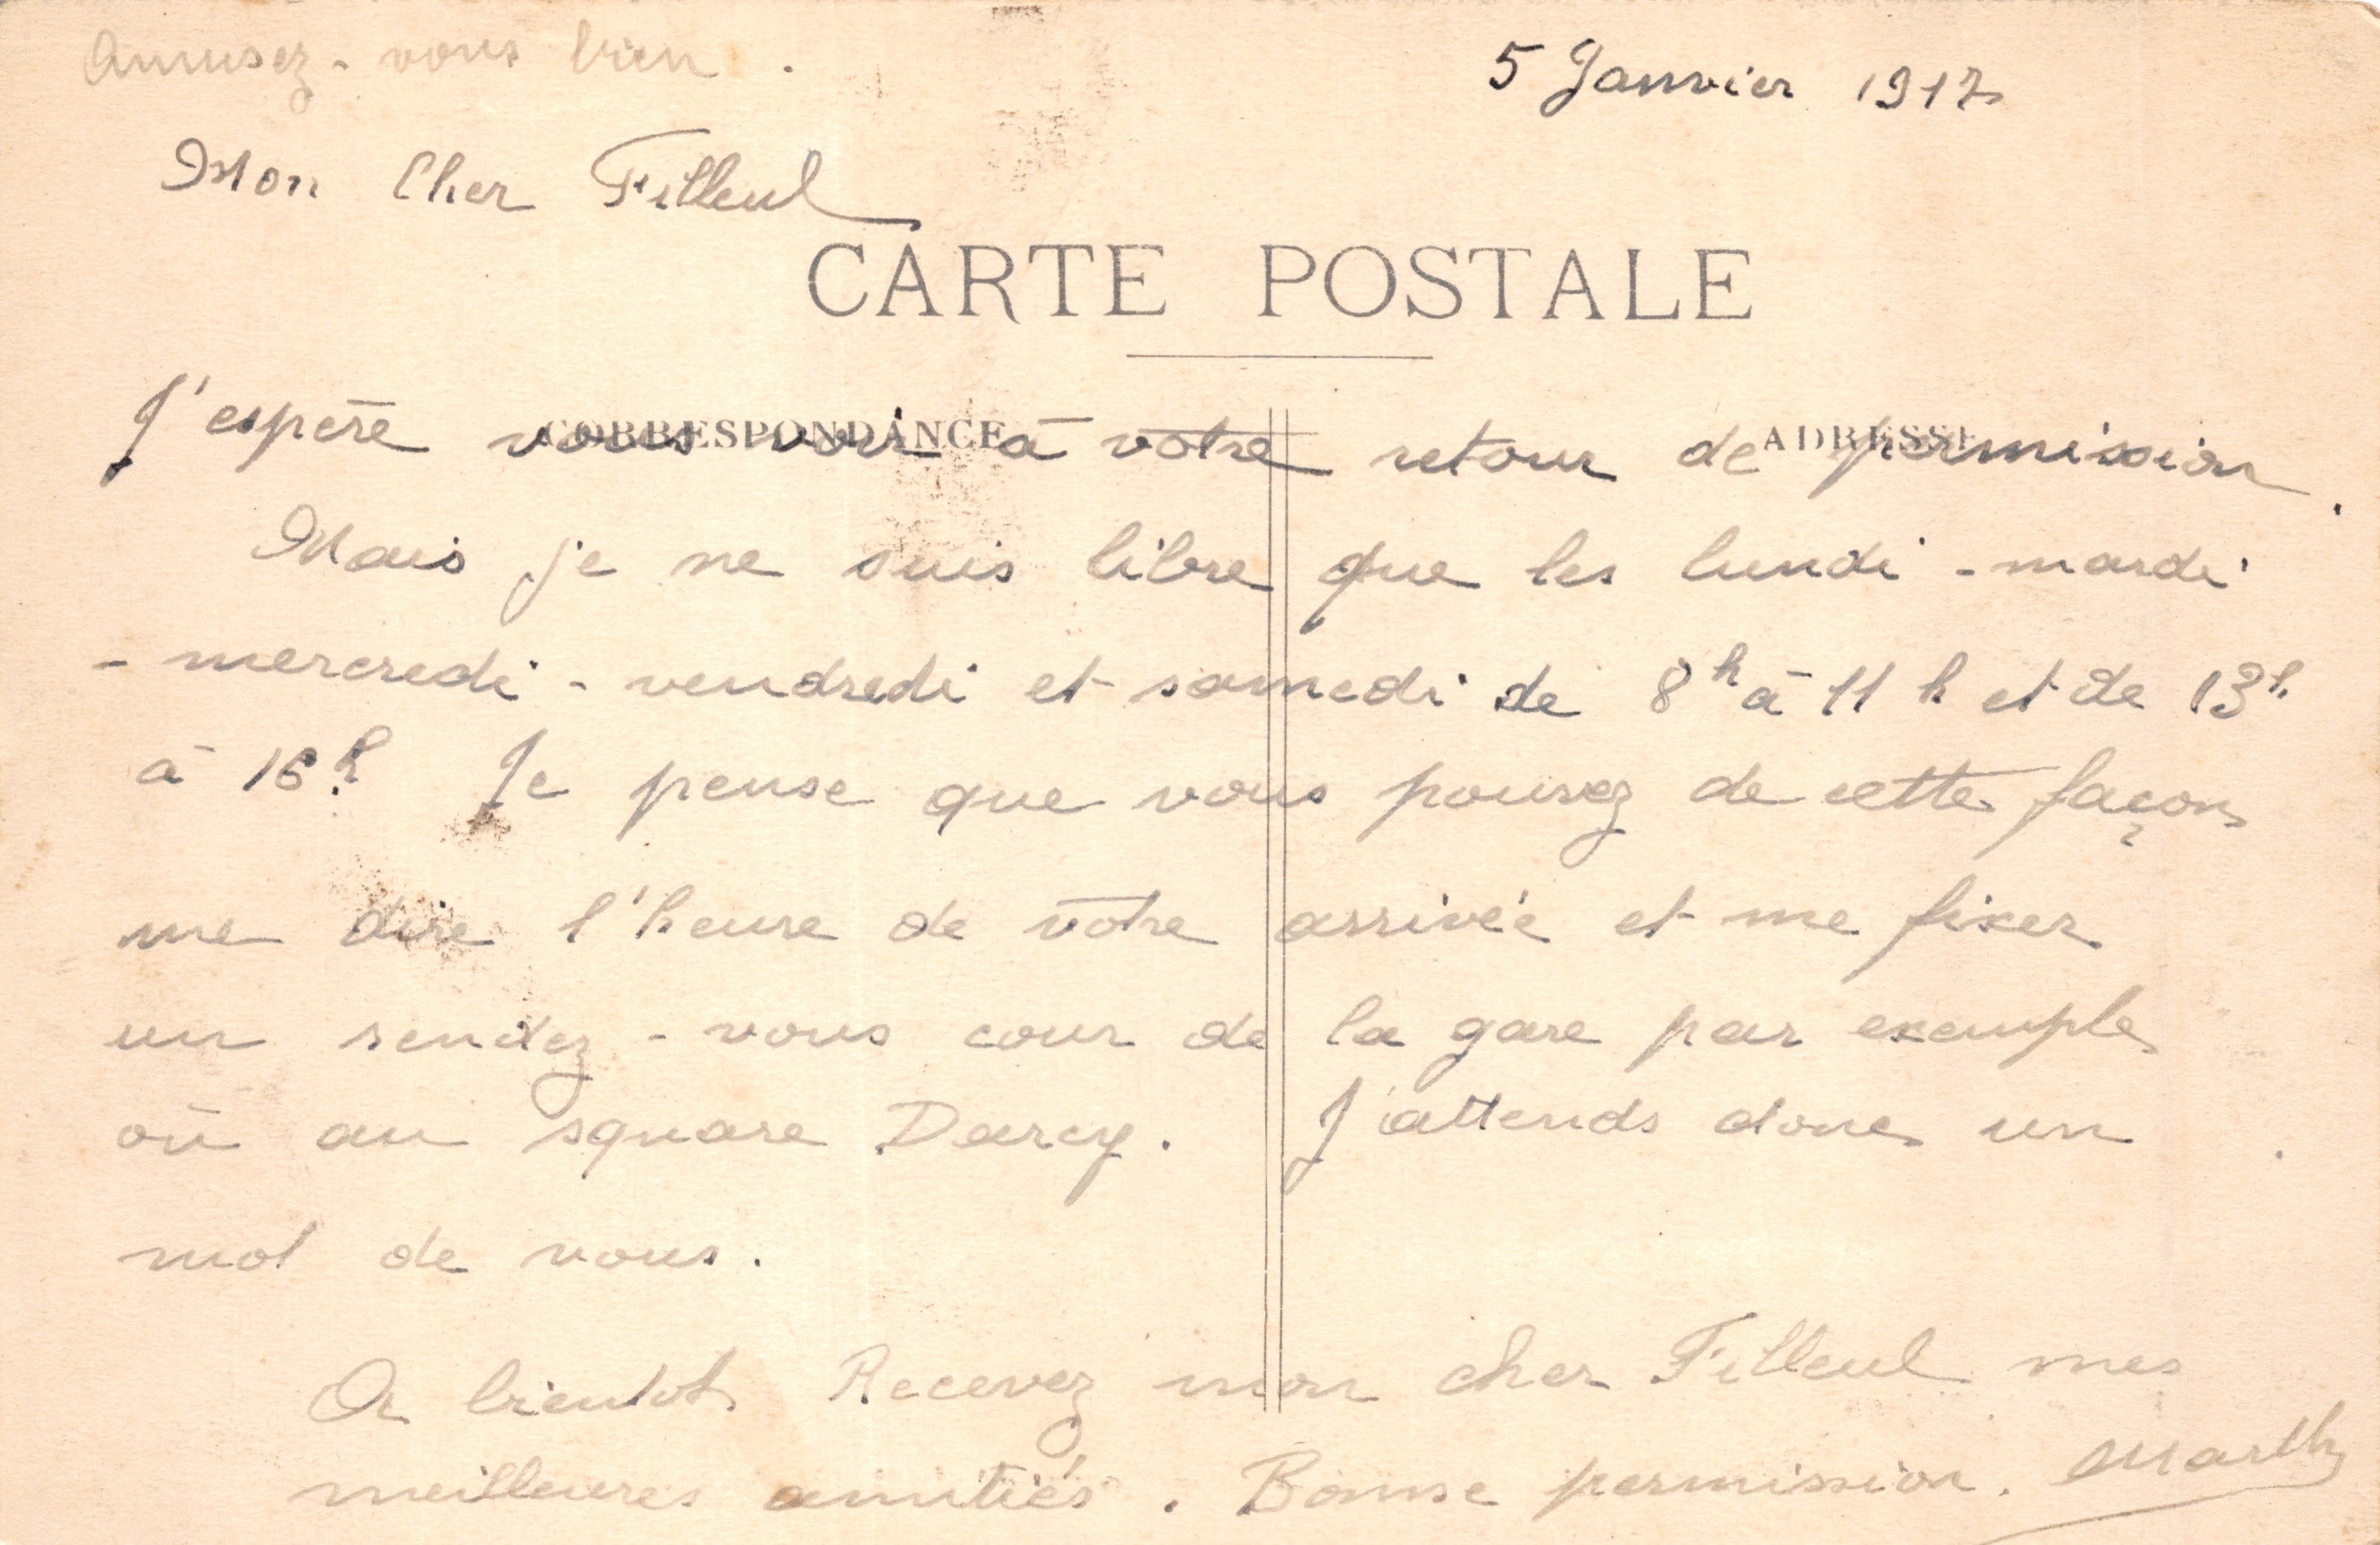 Amusez-vous bien.
5 Janvier 1917
Mon Cher Filleul
CARTE POSTALE
CORRESPONDANCE
ADRESSE
J'espère vous voir à votre retour de permission.
Mais je ne suis libre que les lundi - mardi
- mercredi - vendredi et samedi de 8h à 11h et de 13h
à 16h. Je pense que vous pouvez de cette façon
me dire l'heure de votre arrivée et me fixer
un rendez-vous cour de la gare par exemple
où au square Darcy. J'attends donc un
mot de vous.
A bientôt Recevez mon cher Filleul mes
meilleures amitiés. Bonne permission. Marthe